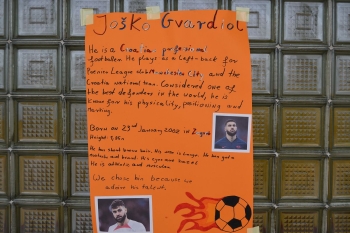 Joško Gvardiol
He is a Croatia profesional
footballer. He plays as a left-back for
Premier League club Manchester City and the
Croatia national team. Considered one of
the best defenders in the world, he is
know for his physicality, positioning and
Born on 23rd January 2002 in Zagreb
Height:
He has short brown hair. His nose is longer. He has got a
and beard. His eyes are
He is athletic and muscular.
We chose him because we
admire his talent.